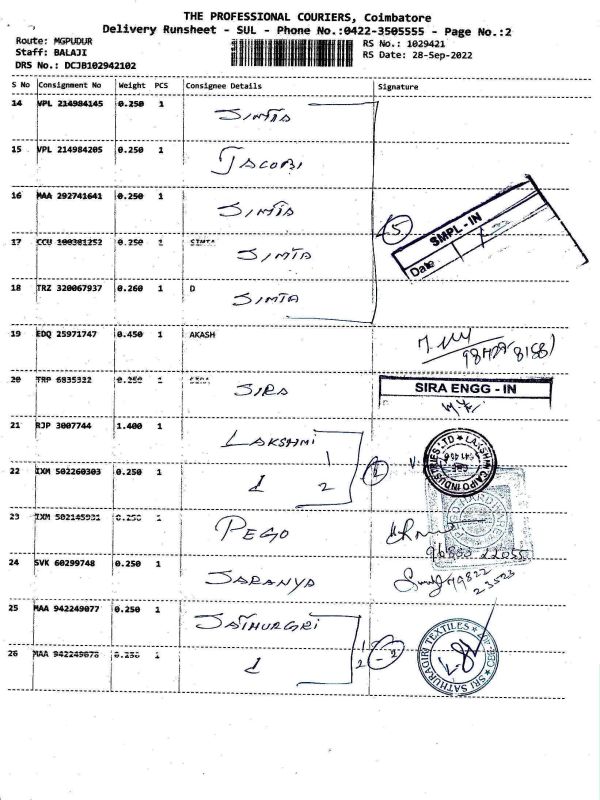 THE PROFESSIONAL COURIERS, Coimbatore
Delivery Runsheet - SUL - Phone No.:0422-3505555 - Page No.:2
Route: MGPUDUR
RS No.: 1029421
Staff: BALAJI
RS Date: 28-Sep-2022
DRS No.: DCJB102942102
S No Consignment No Weight PCS Consignee Details Signature
14 VPL 214984145 0.250 1 SIMTA
15 VPL 214984205 0.250 1 JACOBI
16 MAA 292741641 0.250 1 SIMTA
5 SMPL - IN
Date
17 CCU 100301252 0.250 1 SIMTA
SIMTA
18 TRZ 320067937 0.260 1 D
SIMTA
19 EDQ 25971747 0.450 1 AKASH
20 TRP 6835322 0.250 1 SIRA
SIRA ENGG - IN
21 RJP 3007744 1.400 1 LAKSHMI 1
22 IXM 502260303 0.250 1 2
23 IXM 502145931 0.250 1 PEGO
96803 22055
24 SVK 60299748 0.250 1 SARANYA
25 MAA 942249077 0.250 1 SATHURGRI 1
26 MAA 942249078 0.250 1 2
SRI SATHURAGIRI TEXTILES